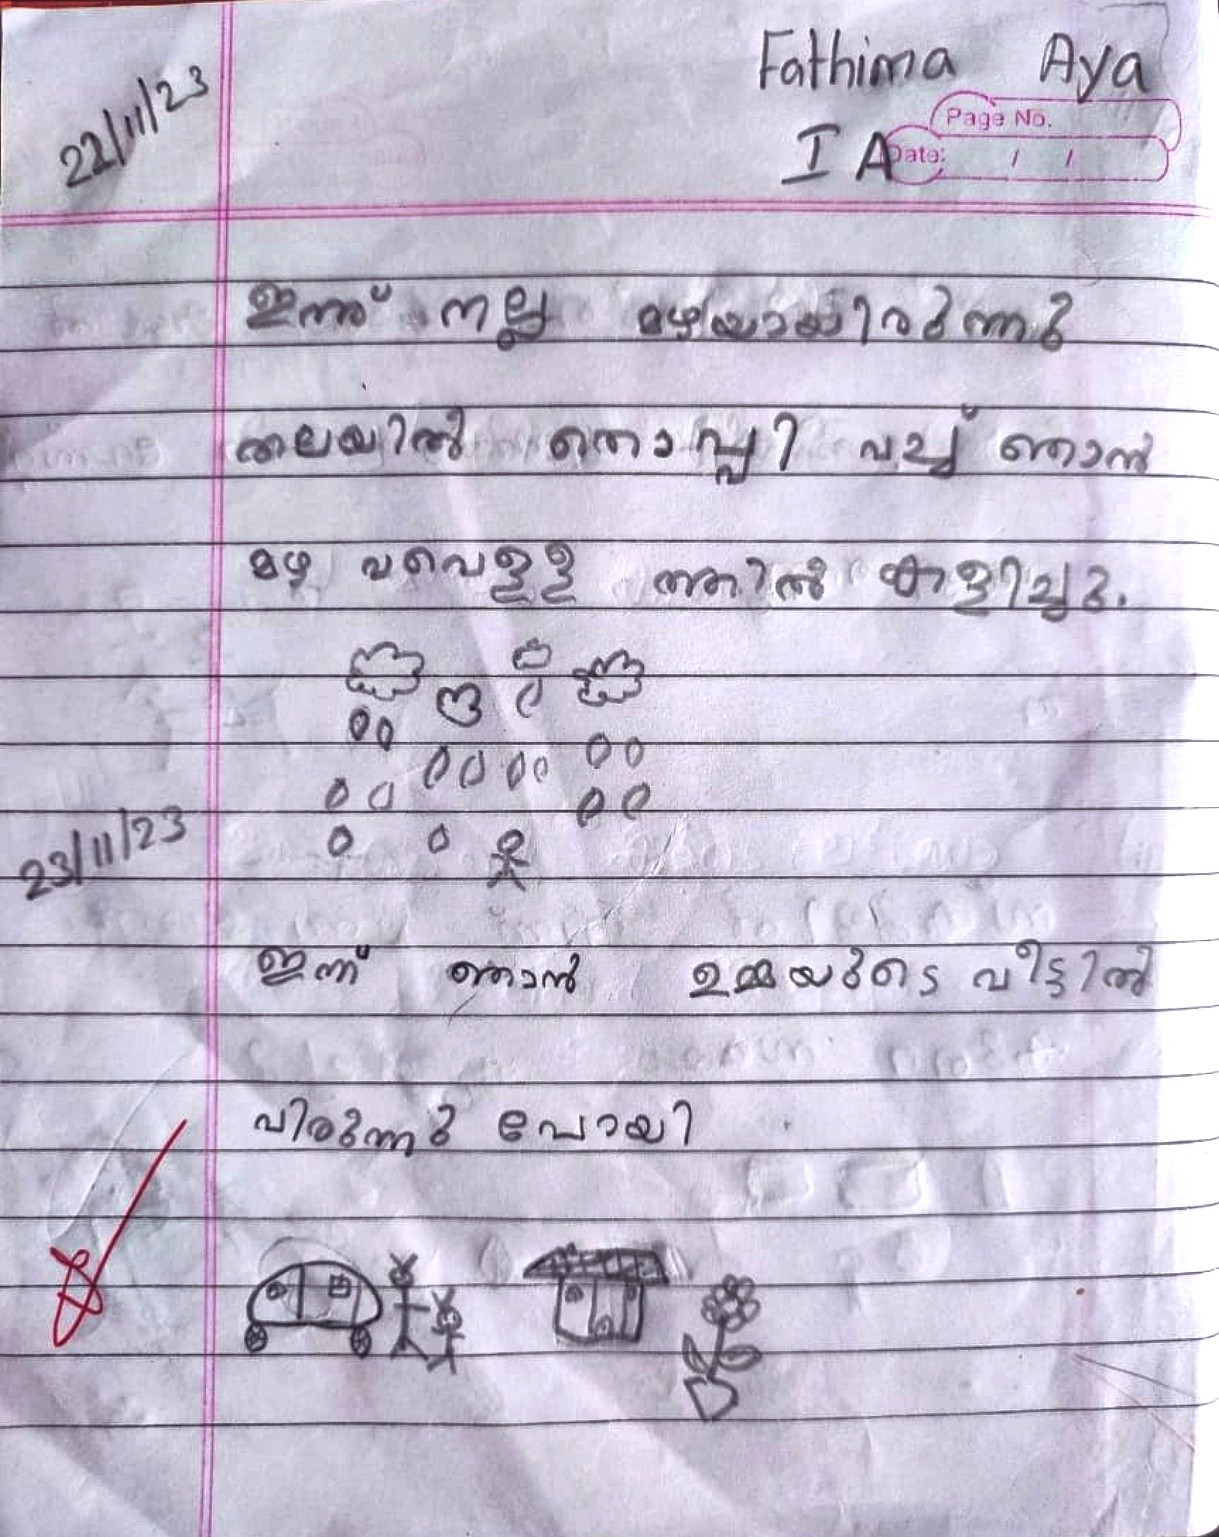 22/11/23
Fathima Aya
I A
Page No.
Date: / /
ഇന്ന് നല്ല മഴയായിരുന്നു
തലയിൽ തൊപ്പി വച്ച് ഞാൻ
മഴ വവെളള ത്തിൽ കളിച്ചു.
23/11/23
ഇന്ന് ഞാൻ ഉമ്മയുടെ വീട്ടിൽ
വിരുന്നു പോയി